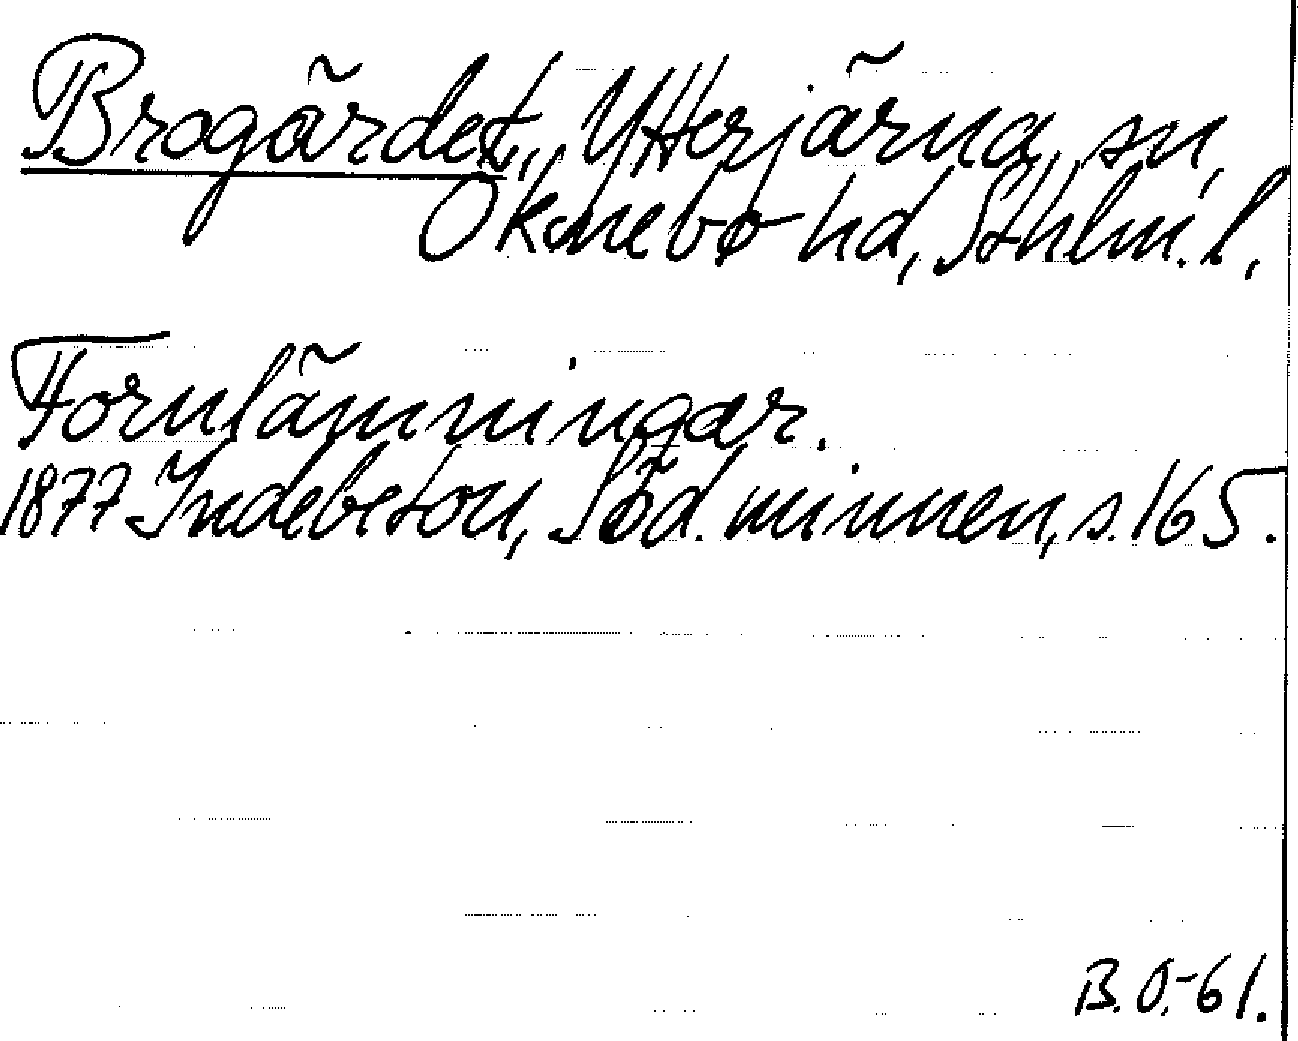 Brogärdet, Ytterjärna sn,
Öknebo hd, Sthlm. l.
Fornlämningar.
1877 Indebetou, Söd. minnen, s. 165.
B.O.-61.